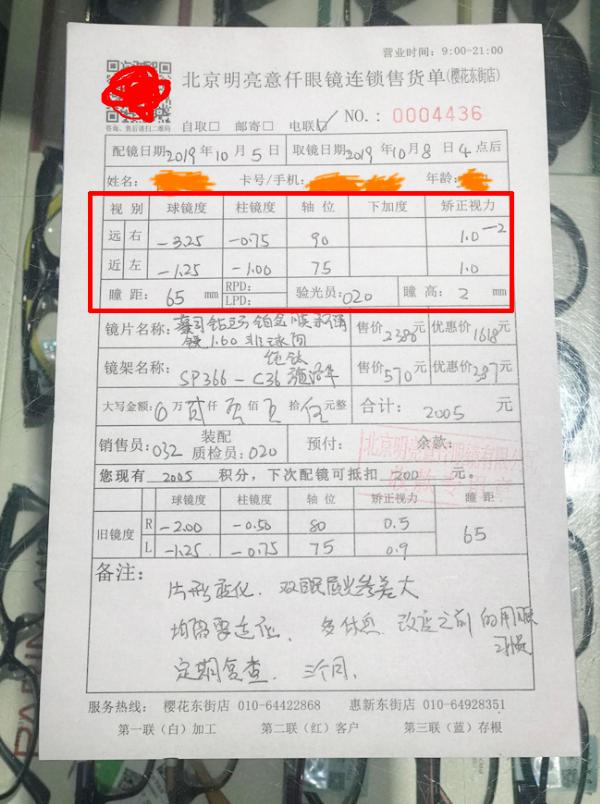 营业时间：9:00-21:00
北京明亮意仟眼镜连锁售货单(樱花东街店)
咨询、售后请扫二维码
自取□ 邮寄□ 电联☑ NO.: 0004436
配镜日期2019年10月5日 取镜日期2019年10月8日4点后
姓名： 卡号/手机： 年龄：
视别 球镜度 柱镜度 轴位 下加度 矫正视力
远 右 -3.25 -0.75 90 1.0-2
近 左 -1.25 -1.00 75 1.0
瞳距：65 mm RPD: LPD: 验光员：020 瞳高：2 mm
镜片名称： 钻 铂金膜 售价2386元 优惠价1618元
1.60 非球面
镜架名称： 纯钛 售价570元 优惠价387元
SP366-C36
大写金额：0万贰仟零佰零拾伍元整 合计：2005元
销售员：032 装配质检员：020 预付： 余款：
您现有2005积分，下次配镜可抵扣200元。
球镜度 柱镜度 轴位 矫正视力 瞳距
旧镜度 R -2.00 -0.50 80 0.5 65
L -1.25 -0.75 75 0.9
备注：
片形变化．双眼屈光参差大
均需要适应．多休息．改定之前的用眼
习惯
定期复查．三个月．
服务热线： 樱花东街店 010-64422868 惠新东街店 010-64928351
第一联（白）加工 第二联（红）客户 第三联（蓝）存根